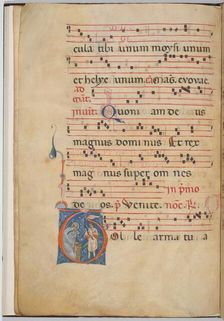 cula tibi unum moysi unum
et helye unum
evovae.
Quoni am de us
magnus dominus et rex
mag nus super om nes
de os. p̄ Venite.
olle arma tu a